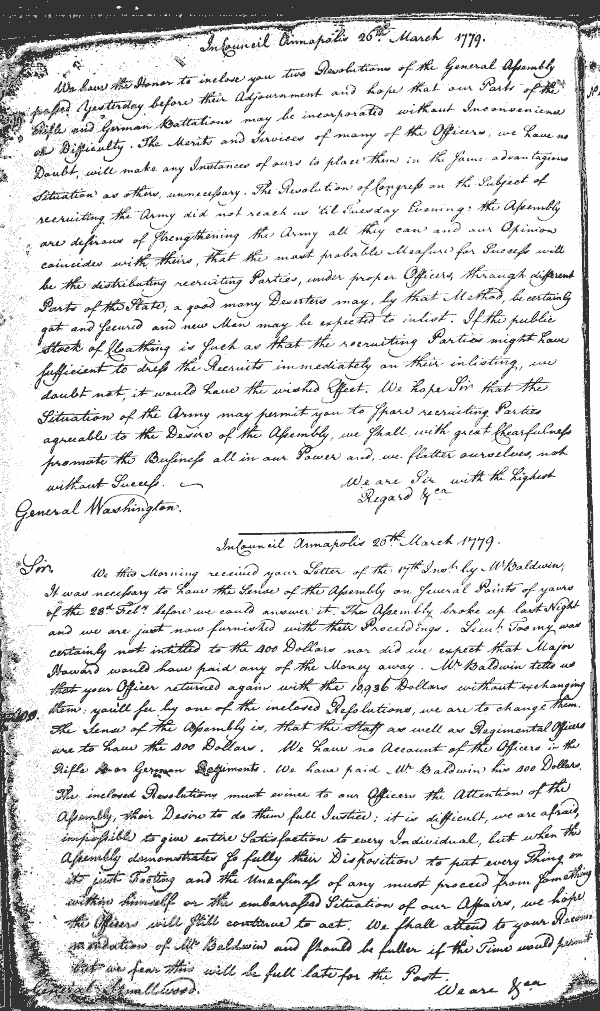 In Council Annapolis 26th March 1779.
We have the Honor to inclose you two Resolutions of the General Assembly
passed Yesterday before their Adjournment and hope that our Parts of the
Rifle and German Battalions may be incorporated without Inconvenience
or Difficulty. The Merits and Services of many of the Officers, we have no
Doubt, will make any Instances of ours to place them in the same advantagious
Situation as others, unnecessary. The Resolution of Congress on the Subject of
recruiting the Army did not reach us 'til Tuesday Evening: the Assembly
are desirous of strengthening the Army all they can and our Opinion
coincides with theirs, that the most probable Measure for Success will
be the distributing recruiting Parties, under proper Officers, through different
Parts of the State; a good many Deserters may, by that Method, be certainly
got and secured and new Men may be expected to inlist. If the public
Stock of Cloathing is such as that the recruiting Parties might have
sufficient to dress the Recruits immediately on their inlisting, we
doubt not, it would have the wished Effect. We hope Sir that the
Situation of the Army may permit you to spare recruiting Parties
agreeable to the Desire of the Assembly, we shall, with great Chearfulness
promote the Business all in our Power and, we flatter ourselves, not
without Success.
We are Sir with the highest
Regard &ca
General Washington.
In Council Annapolis 26th March 1779.
Sir
We this Morning received your Letter of the 17th Inst. by Mr Baldwin,
It was necessary to have the Sense of the Assembly on several Points of yours
of the 28th Feby before we could answer it. The Assembly broke up last Night
and we are just now furnished with their Proceedings. Lieut. Toomy was
certainly not intitled to the 400 Dollars nor did we expect that Major
Howard would have paid any of the Money away. Mr Baldwin tells us
that your Officer returned again with the 10,936 Dollars without exchanging
them; you'll see by one of the inclosed Resolutions, we are to change them.
The Sense of the Assembly is, that the Staff as well as Regimental Officers
are to have the 400 Dollars. We have no Account of the Officers in the
Rifle or German Regiments. We have paid Mr Baldwin his 400 Dollars.
The inclosed Resolutions must evince to our Officers the Attention of the
Assembly, their Desire to do them full Justice; it is difficult, we are afraid,
impossible to give entire Satisfaction to every Individual, but when the
Assembly demonstrates so fully their Disposition to put every Thing on
its just Footing and the Uneasiness of any must proceed from something
within himself or the embarrassed Situation of our Affairs, we hope
the Officers will still continue to act. We shall attend to your Recom
mendation of Mr Baldwin and should be fuller if the Time would permit
but we fear this will be full late for the Post.
We are &ca
General Smallwood.